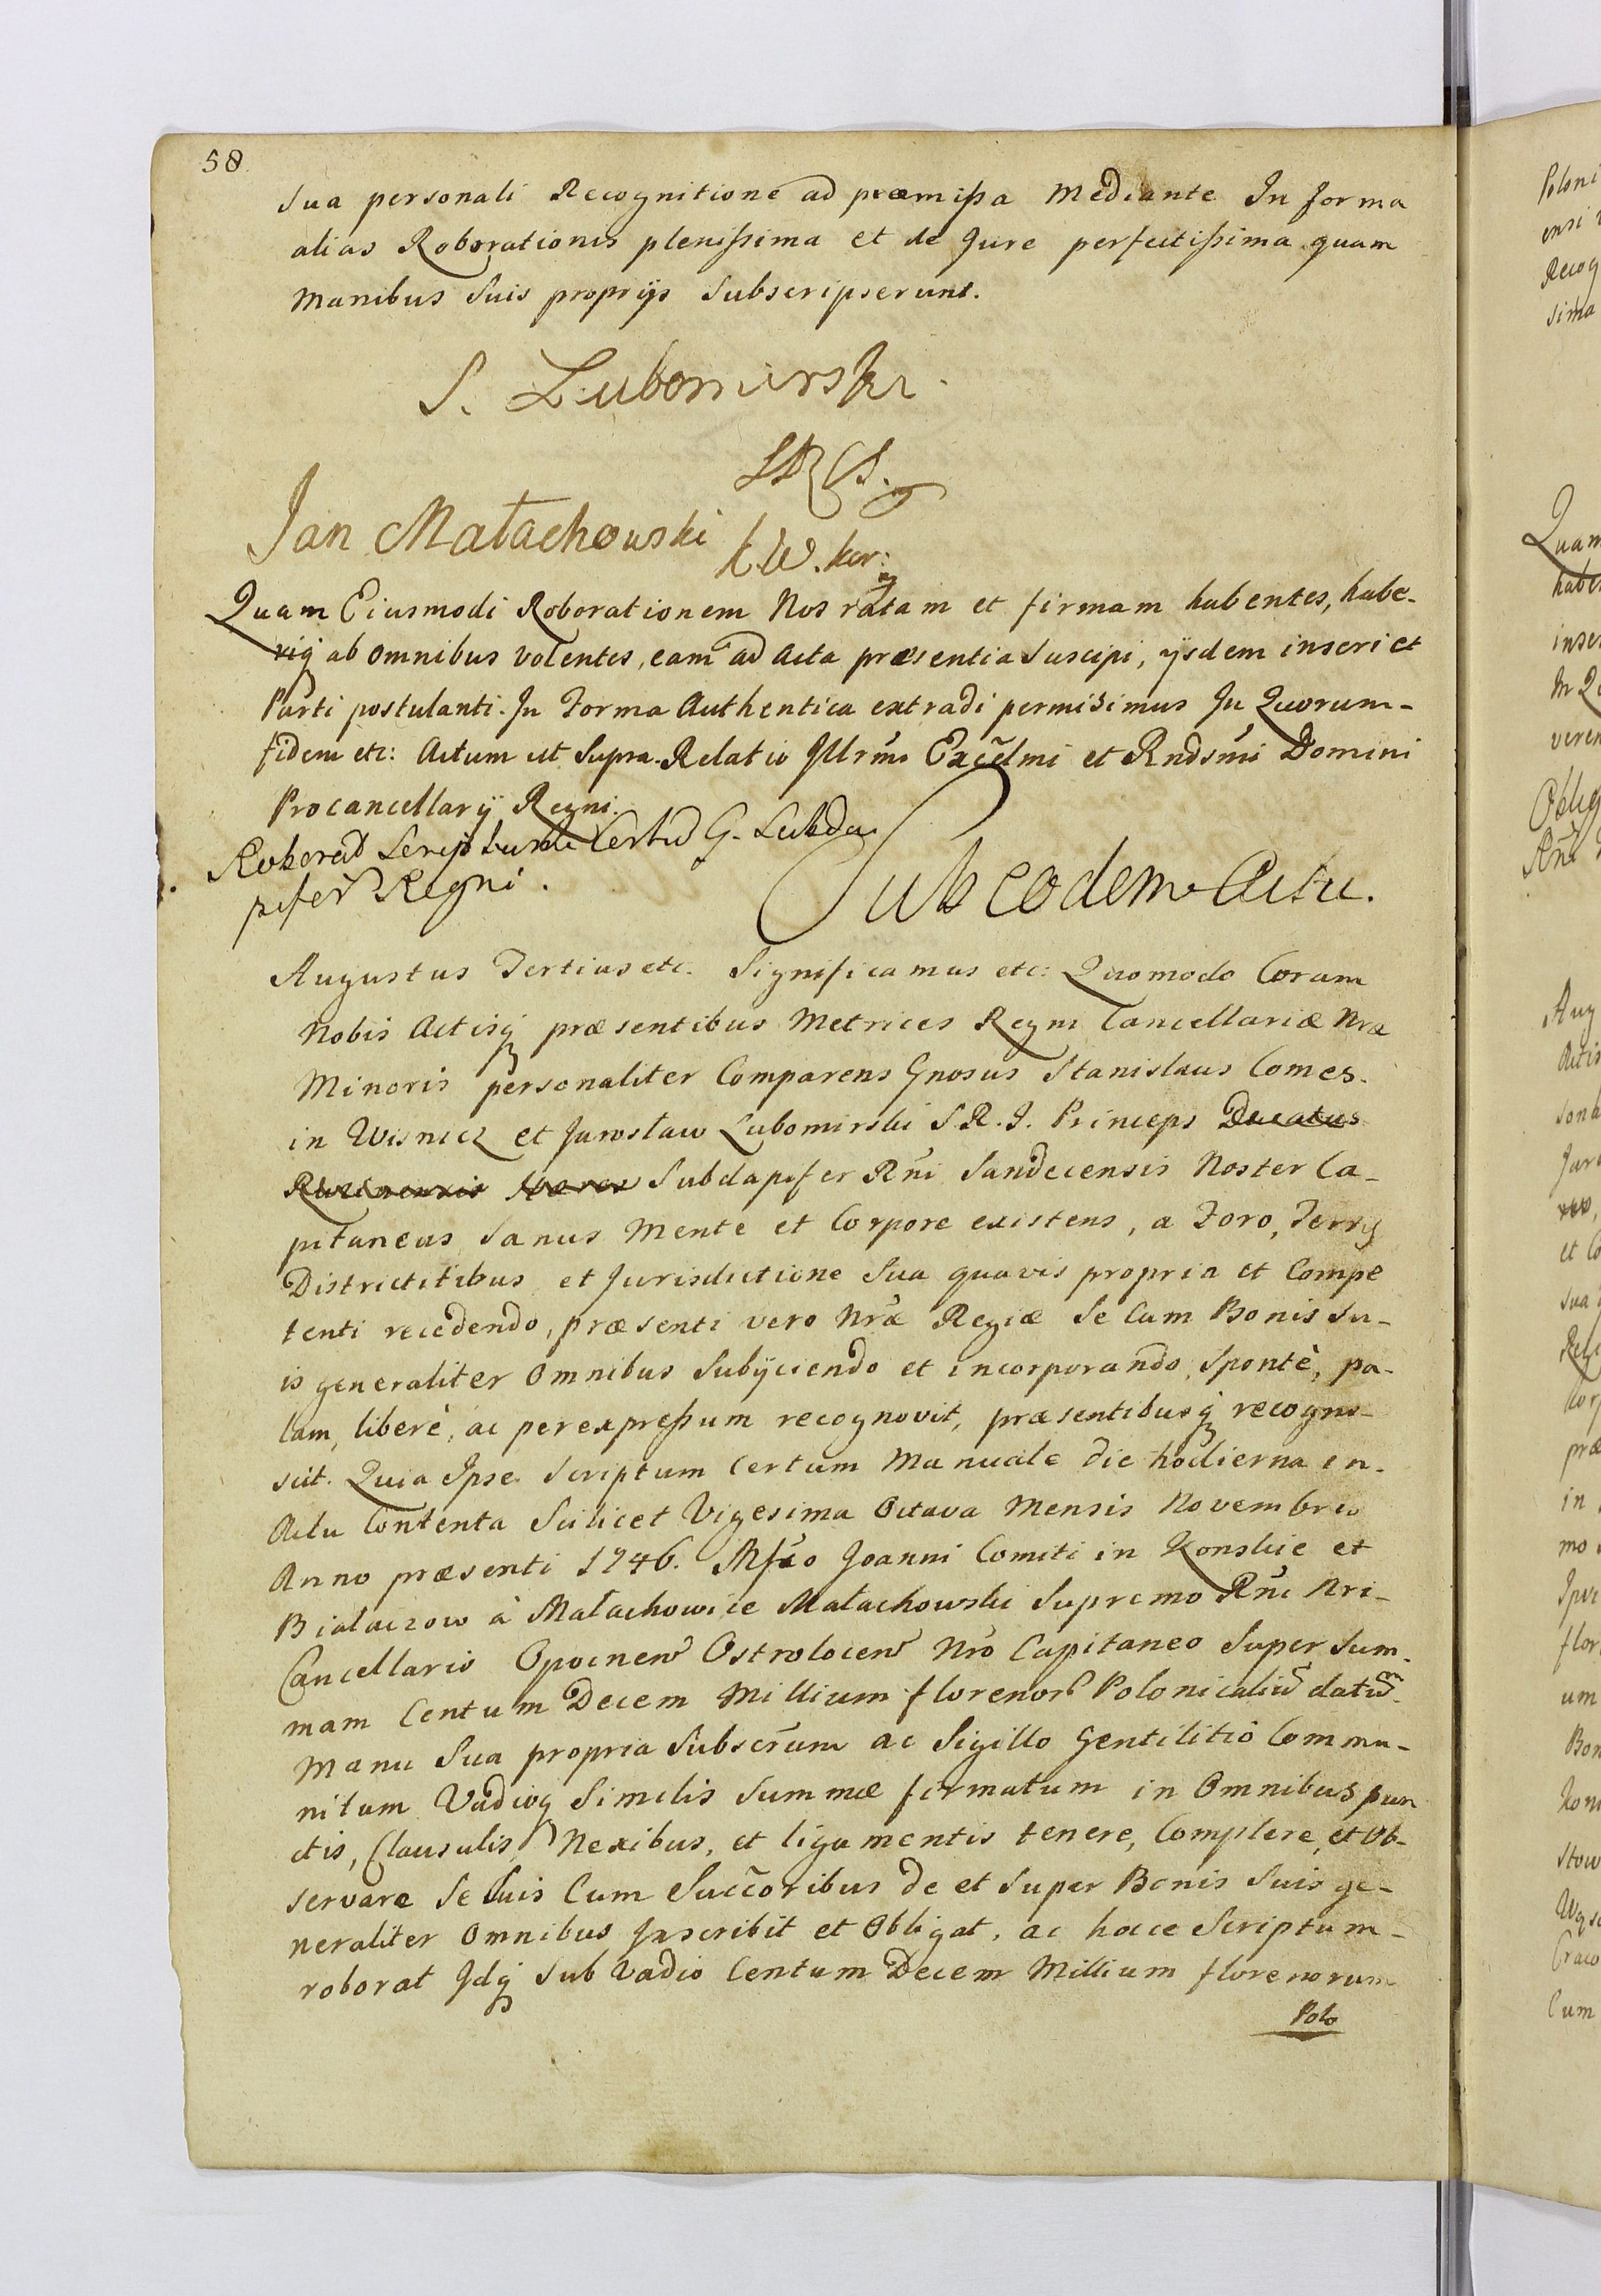 58
Sua personali Recognitione ad præmissa Mediante In forma
alias Roborationis plenissima et de Jure perfectissima quam
Manibus Suis propriis Subscripserunt.
S. Lubomirski
Jan Małachowski K.W. kor:
Quam Eiusmodi Roborationem Nos ratam et firmam habentes, habe-
riq ab omnibus volentes, eam ad Acta præsentia Suscipi, ijsdem inseri et
Parti postulanti In Forma Authentica extradi permisimus In Quorum-
fidem etc: Actum ut Supra. Relatio Illrmi Excelmi et Rndsmi Domini
Procancellarij Regni.
Roborat Script
pifer Regni.
Sub eodem Actu.
Augustus Tertius etc. Significamus etc: Quomodo Coram
Nobis Actisq præsentibus Metrices Regni Cancellariæ Nræ
Minoris personaliter Comparens Gnosus Stanislaus Comes
in Wisnicz et Jarosław Lubomirski S.R.I. Princeps Ducatus
Subdapifer Rni Sandecensis Noster Ca-
pitaneus Sanus Mente et Corpore existens, a Foro, Terris
Districtitibus et Jurisdictione Sua quavis propria et Compe
tenti recedendo, præsenti vero Nræ Regiæ Se Cum Bonis Su-
is generaliter Omnibus Subijciendo et incorporando, Spontè, pa-
lam, liberè, ac per expressum recognovit, præsentibusq recogno-
scit. Quia Ipse Scriptum Certum Manuale die hodierna in-
Actu Contenta Scilicet Vigesima Octava Mensis Novembris
Anno præsenti 1746. Mfco Joanni Comiti in Konskie et
Białaczow à Małachowice Małachowski Supremo Rni Nri-
Cancellario Opocnen Ostrolocen Nro Capitaneo Super Sum-
mam Centum Decem Millium florenor Polonicaliu datu
Manu Sua propria Subscrum ac Sigillo Gentilitio Commu-
nitum Vadioq Similis Summæ firmatum in Omnibus pun
ctis, Clausulis Nexibus, et ligamentis tenere, Complere, et Ob-
servare Se Suis Cum Succoribus de et Super Bonis Suis ge-
neraliter Omnibus Inscribit et Obligat, ac hocce Scriptum-
roborat Idq Sub Vadio Centum Decem Millium florenorum
Polo